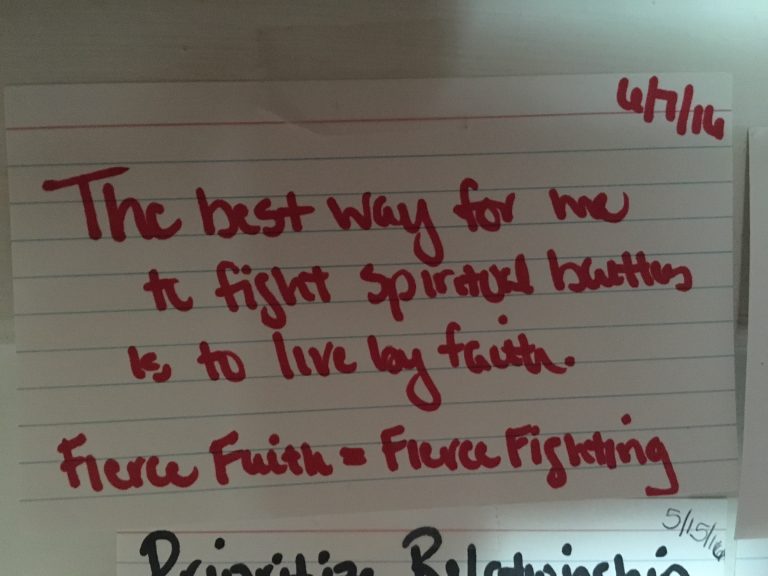 6/7/16
The best way for me
to fight spiritual battles
is to live by faith.
Fierce Faith = Fierce Fighting
5/15/16
Prioritize Relationship